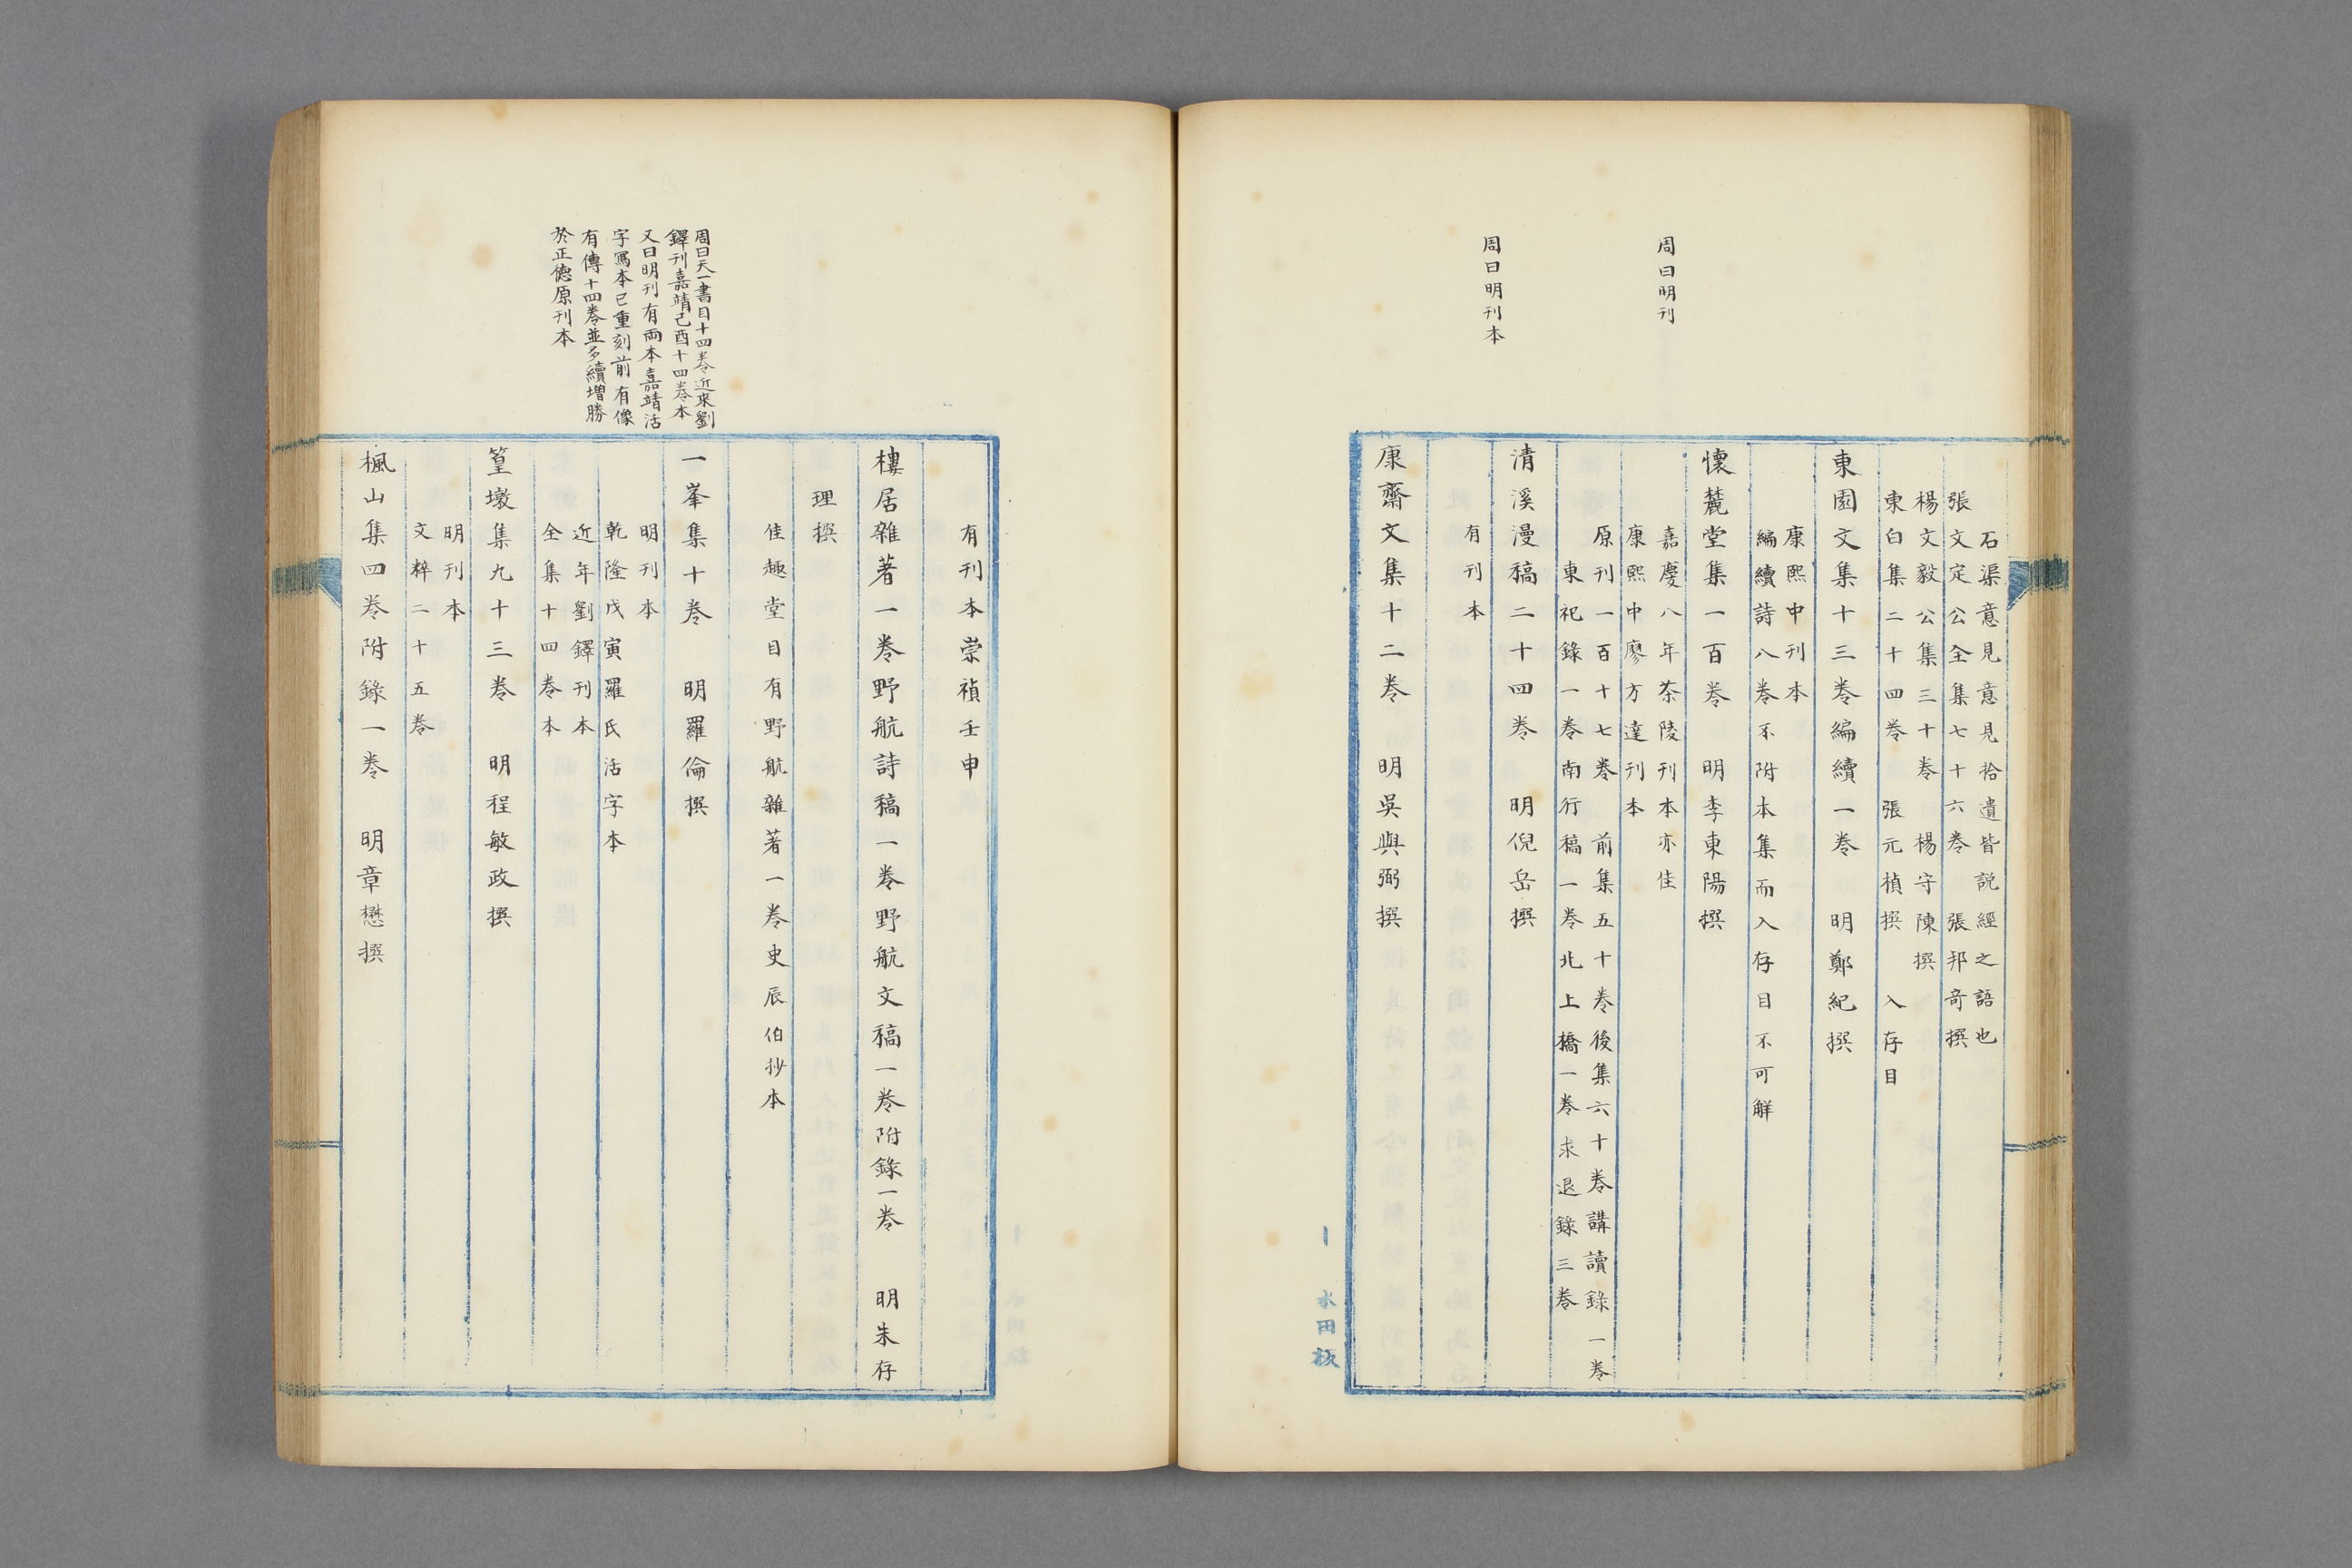 周曰明刊
周曰明刊本
石渠意見意見拾遺皆說經之語也
張文定公全集七十六卷 張邦奇撰
楊文毅公集三十卷 楊守陳撰
東白集二十四卷 張元楨撰 入存目
東園文集十三卷編續一卷 明鄭紀撰
康熙中刊本
編續詩八卷不附本集而入存目不可解
懷麓堂集一百卷 明李東陽撰
嘉慶八年茶陵刊本亦佳
康熙中廖方達刊本
原刊一百十七卷 前集五十卷後集六十卷講讀錄一卷
東祀錄一卷南行稿一卷北上橋一卷求退錄三卷
清溪漫稿二十四卷 明倪岳撰
有刊本
康齋文集十二卷 明吳與弼撰
水田板
周曰天一書目十四卷近來劉
鐸刊嘉靖己酉十四卷本
又曰明刊有兩本嘉靖活
字寫本已重刻前有像
有傳十四卷並多續增勝
於正德原刊本
有刊本崇禎壬申
樓居雜著一卷野航詩稿一卷野航文稿一卷附錄一卷 明朱存
理撰
佳趣堂目有野航雜著一卷史辰伯抄本
一峯集十卷 明羅倫撰
明刊本
乾隆戊寅羅氏活字本
近年劉鐸刊本
全集十四卷本
篁墩集九十三卷 明程敏政撰
明刊本
文粹二十五卷
楓山集四卷附錄一卷 明章懋撰